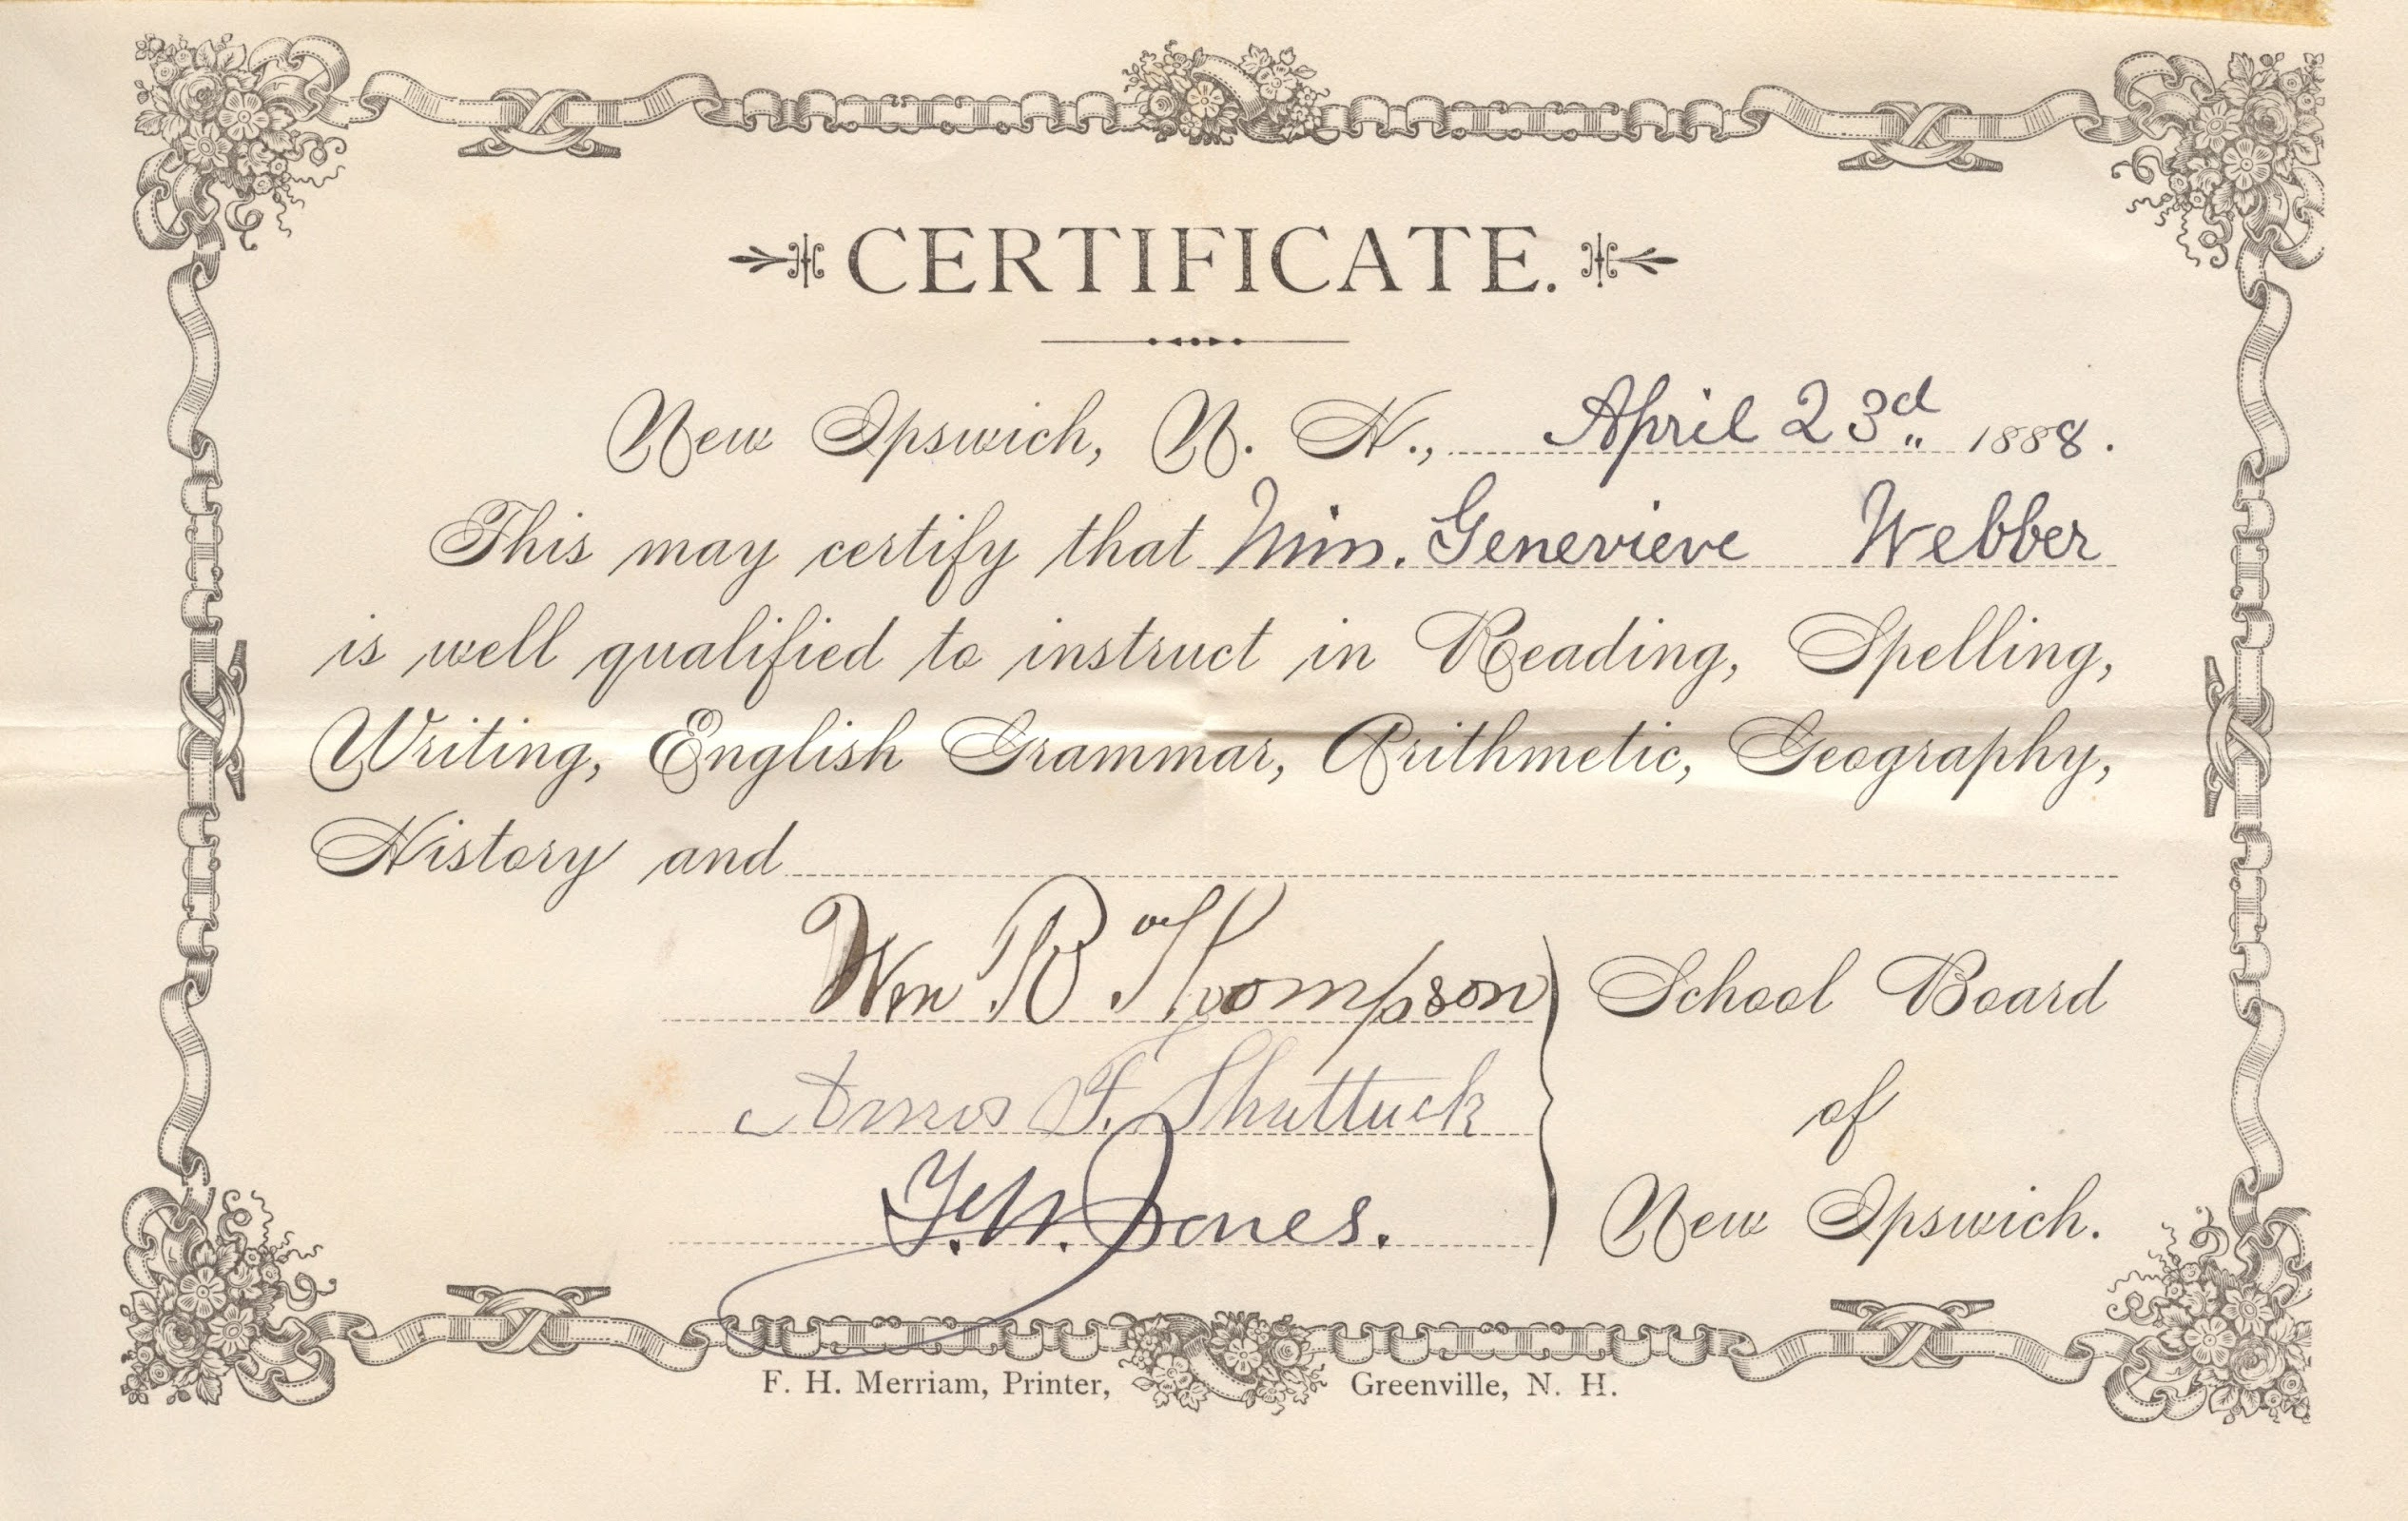 CERTIFICATE.
New Ipswich, N. H., April 23d 1888.
This may certify that Miss. Genevieve Webber
is well qualified to instruct in Reading, Spelling,
Writing, English Grammar, Arithmetic, Geography,
History and
Wm R Thompson
School Board
Amos F. Shattuck
of
Jones.
New Ipswich.
F. H. Merriam, Printer, Greenville, N. H.